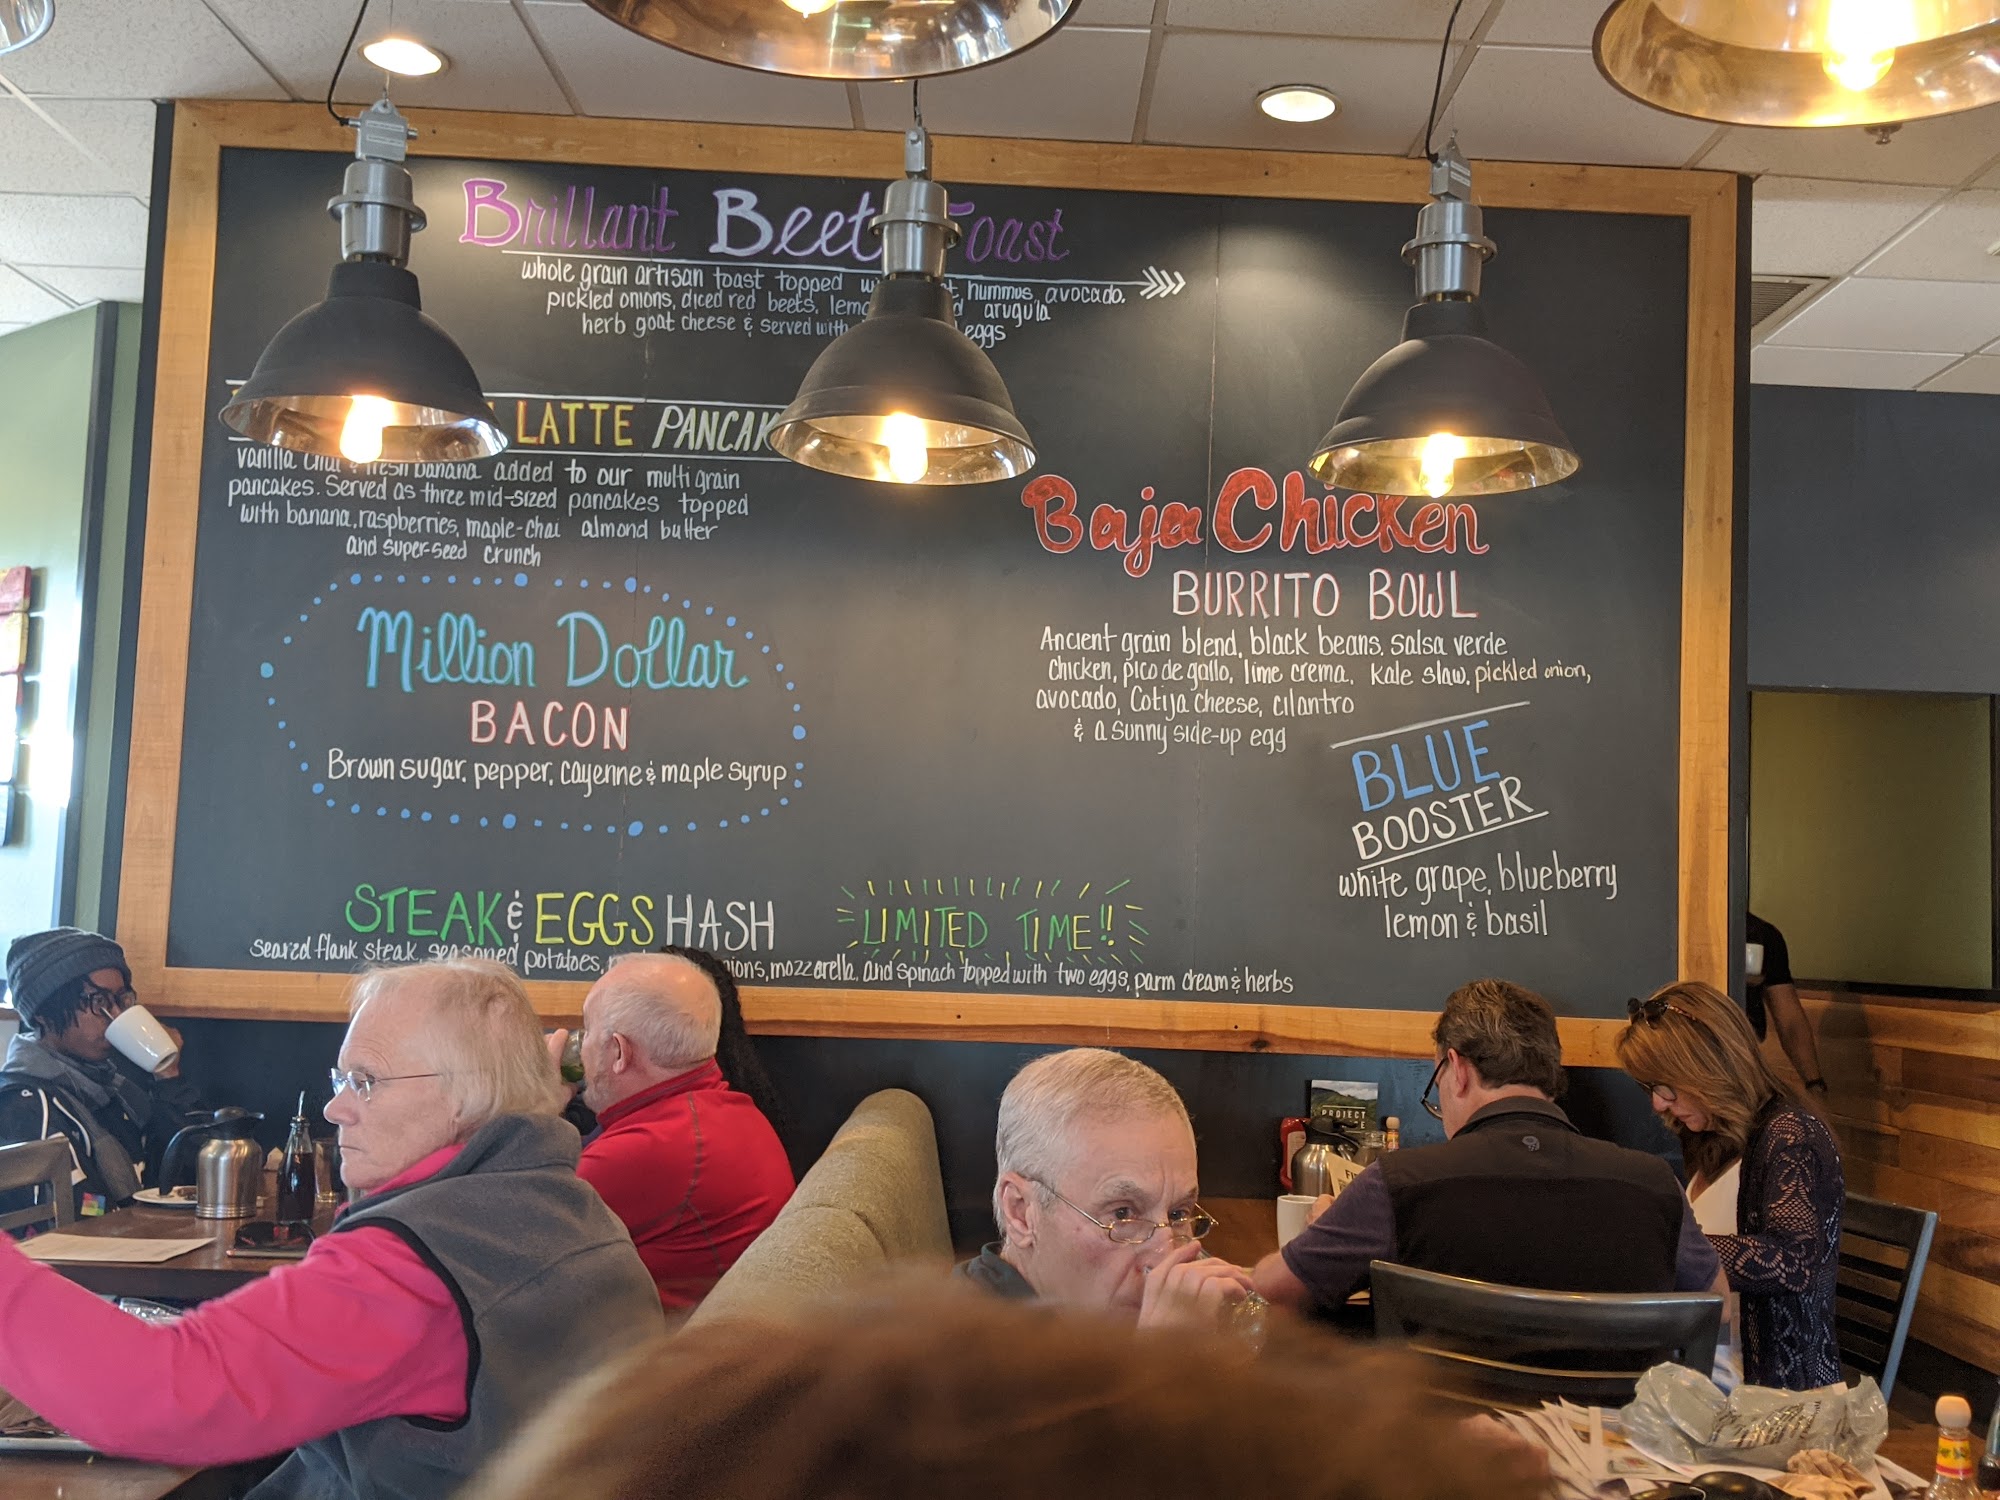 Brillant Beet Toast
whole grain artisan toast topped hummus, avocado,
pickled onions, diced red beets, arugula
herb goat cheese & served with eggs
LATTE
vanilla chai & fresh banana added to our multi grain
pancakes. Served as three mid-sized pancakes topped
with banana, raspberries, maple-chai almond butter
and super-seed crunch
Million Dollar
BACON
Brown sugar, pepper, cayenne & maple syrup
Baja Chicken
BURRITO BOWL
Ancient grain blend, black beans, salsa verde
Chicken, pico de gallo, lime crema, kale slaw, pickled onion,
avocado, Cotija cheese, cilantro
& a sunny side-up egg
BLUE
BOOSTER
white grape, blueberry
lemon & basil
STEAK & EGGS HASH
LIMITED TIME!!
seared flank steak, seasoned potatoes, mozzarella, and spinach topped with two eggs, parm cream & herbs
PROJECT